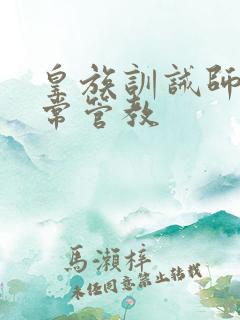 皇族訓誡師
常管教
馬瀨梓
未经同意禁止转载